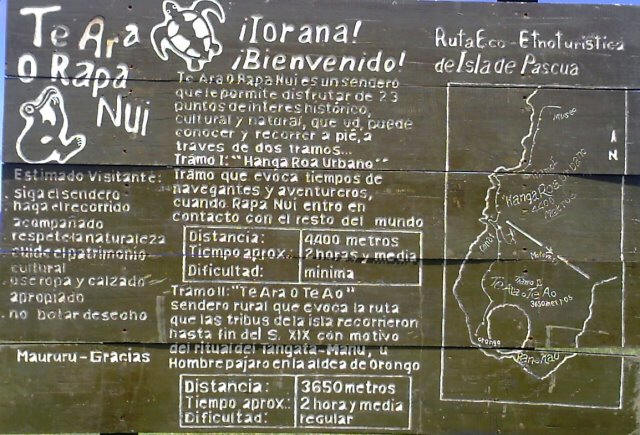 Te Ara
O Rapa
Nui
Estimado Visitante:
. siga el sendero
. haga el recorrido
acompañado
. respete la naturaleza
. cuide el patrimonio
cultural
. use ropa y calzado
apropiado
. no botar desecho
Maururu - Gracias
¡Iorana!
¡Bienvenido!
Te Ara O Rapa Nui es un sendero
que le permite disfrutar de 23
puntos de interes histórico,
cultural y natural, que ud, puede
conocer y recorrer a pié, a
través de dos tramos...
Tramo I: "Hanga Roa Urbano"
Tramo que evoca tiempos de
navegantes y aventureros,
cuando Rapa Nui entro en
contacto con el resto del mundo
Distancia: 4,400 metros
Tiempo aprox.: 2 horas y media
Dificultad: minima
Tramo II: "Te Ara O Te Ao"
sendero rural que evoca la ruta
que las tribus de la isla recorrieron
hasta fin del S. XIX con motivo
del Ritual del Tangata-Manu, u
Hombre pajaro en la aldea de Orongo
Distancia: 3650 metros
Tiempo aprox.: 2 hora y media
Dificultad: regular
Ruta Eco-Etnoturistica
de Isla de Pascua
museo
N
Tramo I
Hanga Roa Urbano
4,400
Metros
Tramo II
Te Ara o Te Ao
3650 metros
Orongo
Rano Kau